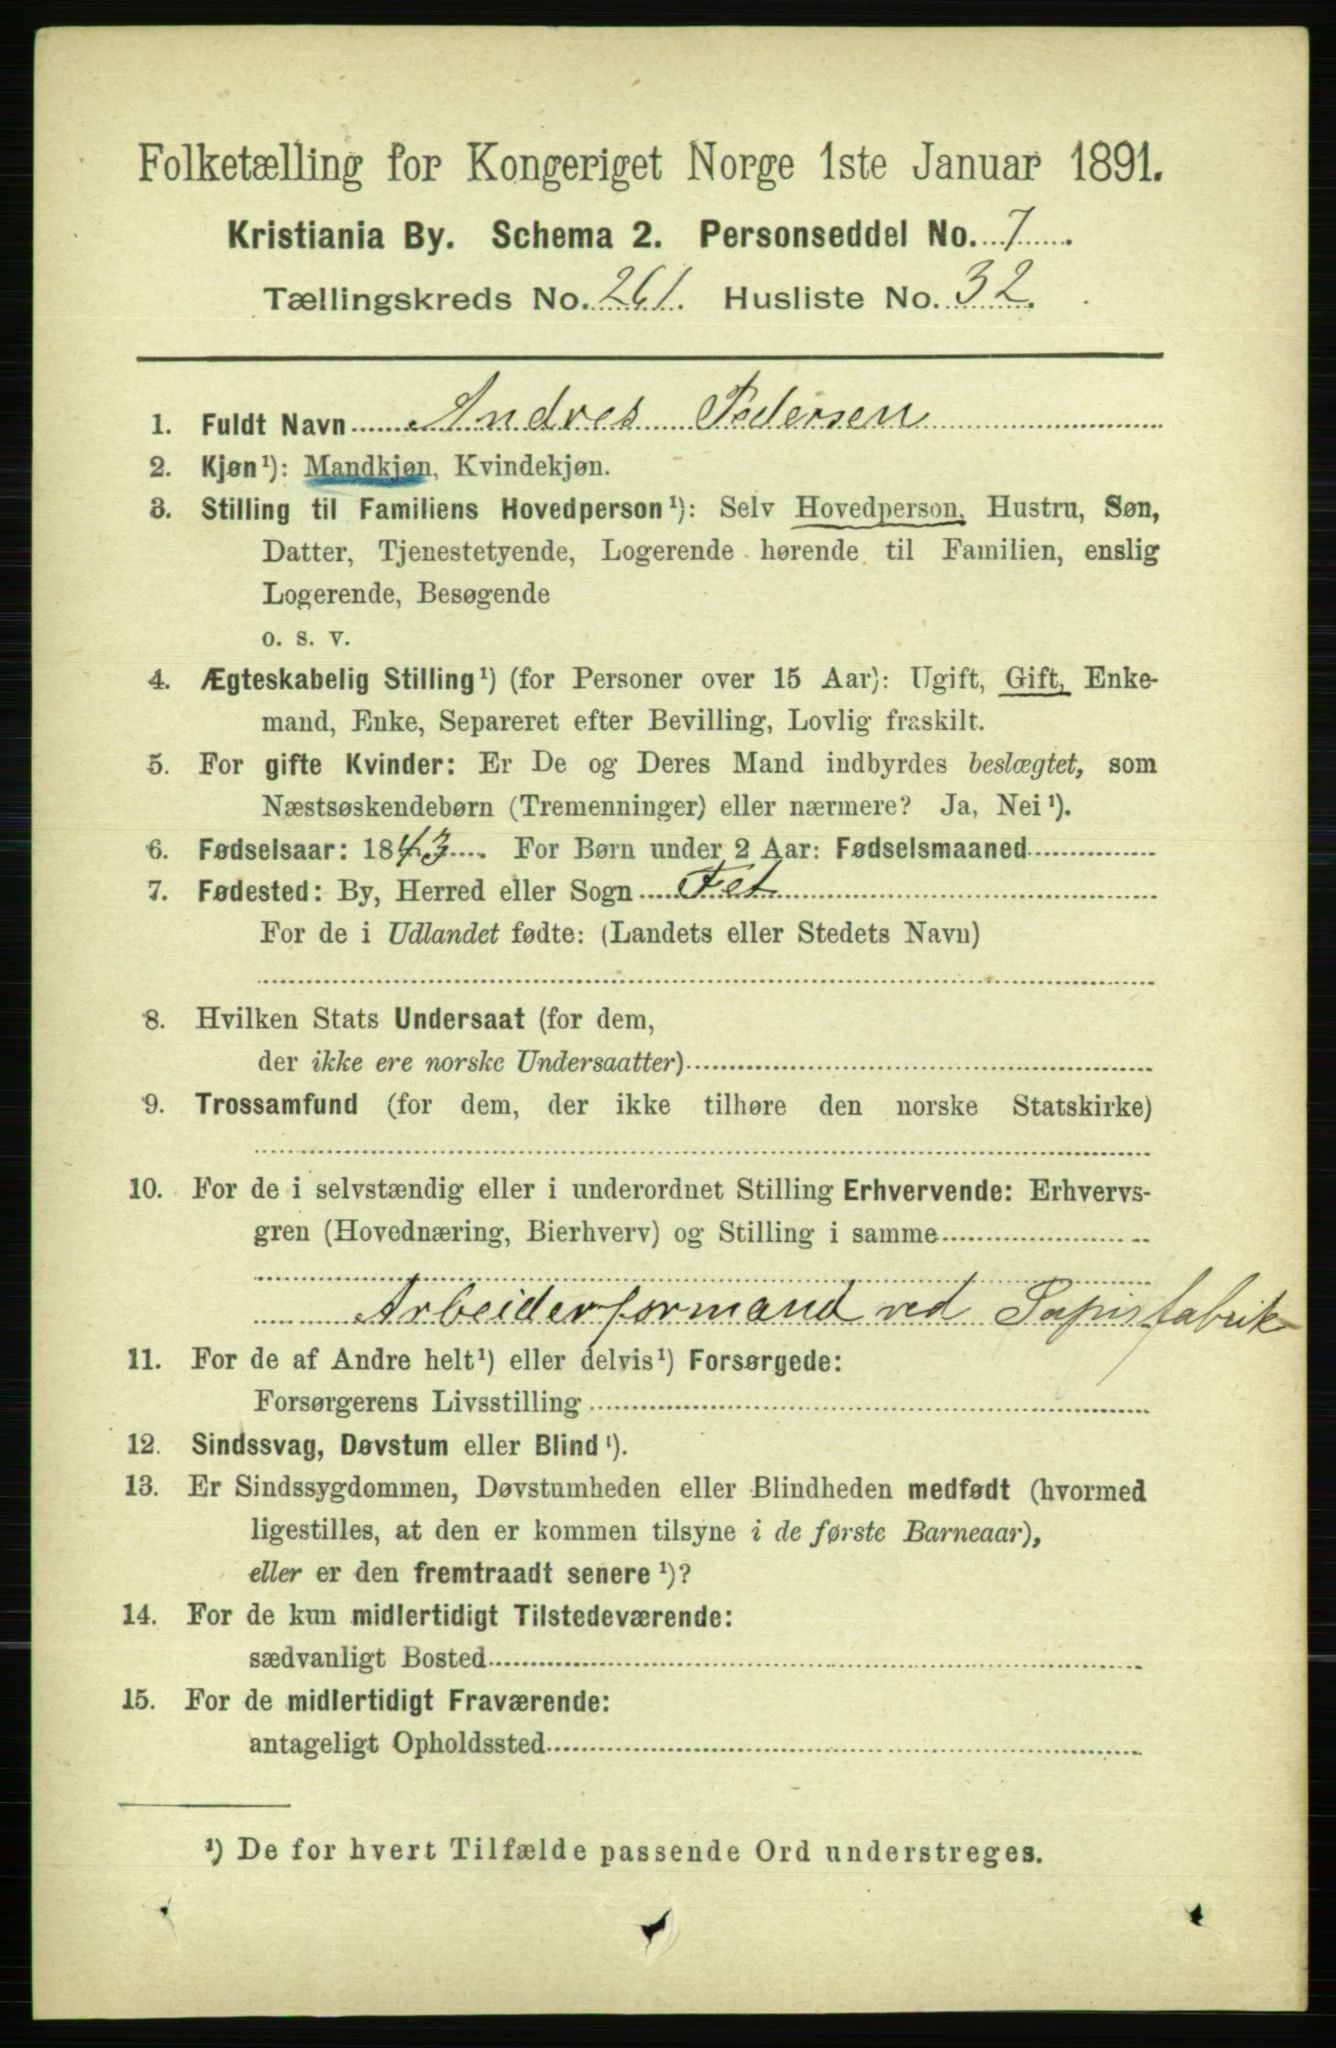 Folketælling for Kongeriget Norge 1ste Januar 1891.
Kristiania By. Schema 2. Personseddel No. 7
Tællingskreds No. 261. Husliste No. 32.
1. Fuldt Navn Andres Pedersen
2. Kjøn¹): Mandkjøn, Kvindekjøn.
3. Stilling til Familiens Hovedperson¹): Selv Hovedperson, Hustru, Søn,
Datter, Tjenestetyende, Logerende hørende til Familien, enslig
Logerende, Besøgende
o. s. v.
4. Ægteskabelig Stilling¹) (for Personer over 15 Aar): Ugift, Gift, Enke-
mand, Enke, Separeret efter Bevilling, Lovlig fraskilt.
5. For gifte Kvinder: Er De og Deres Mand indbyrdes beslægtet, som
Næstsøskendebørn (Tremenninger) eller nærmere? Ja, Nei¹).
6. Fødselsaar: 1843. For Børn under 2 Aar: Fødselsmaaned
7. Fødested: By, Herred eller Sogn Fet
For de i Udlandet fødte: (Landets eller Stedets Navn)
8. Hvilken Stats Undersaat (for dem,
der ikke ere norske Undersaatter)
9. Trossamfund (for dem, der ikke tilhøre den norske Statskirke)
10. For de i selvstændig eller i underordnet Stilling Erhvervende: Erhvervs-
gren (Hovednæring, Bierhverv) og Stilling i samme
Arbeiderformand ved Papirfabrik
11. For de af Andre helt¹) eller delvis¹) Forsørgede:
Forsørgerens Livsstilling
12. Sindssvag, Døvstum eller Blind¹).
13. Er Sindssygdommen, Døvstumheden eller Blindheden medfødt (hvormed
ligestilles, at den er kommen tilsyne i de første Barneaar),
eller er den fremtraadt senere¹)?
14. For de kun midlertidigt Tilstedeværende:
sædvanligt Bosted
15. For de midlertidigt Fraværende:
antageligt Opholdssted
¹) De for hvert Tilfælde passende Ord understreges.